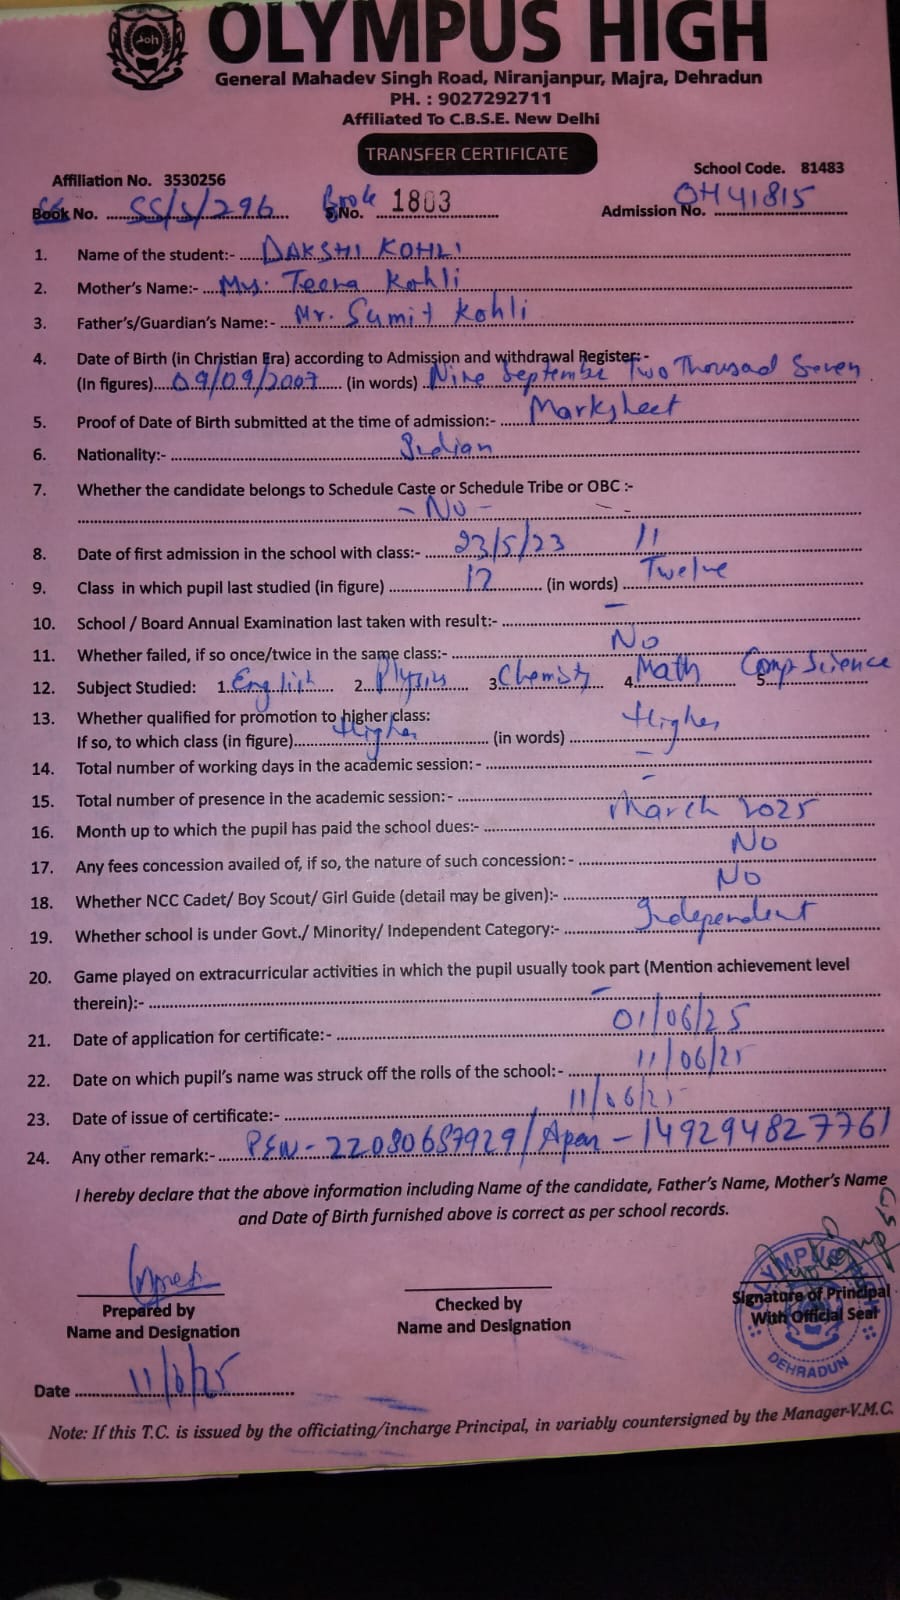 Soh
OLYMPUS HIGH
General Mahadev Singh Road, Niranjanpur, Majra, Dehradun
PH. : 9027292711
Affiliated To C.B.S.E. New Delhi
TRANSFER CERTIFICATE
Affiliation No. 3530256 School Code. 81483
Book No. SS/S/296 Book No. 1803 Admission No. OH41815
1. Name of the student:- DAKSHI KOHLI
2. Mother's Name:- Ms. Teena Kohli
3. Father's/Guardian's Name:- Mr. Sumit Kohli
4. Date of Birth (in Christian Era) according to Admission and withdrawal Register:-
(In figures) 09/09/2007 (in words) Nine September Two Thousad Seven
5. Proof of Date of Birth submitted at the time of admission:- Marksheet
6. Nationality:- Indian
7. Whether the candidate belongs to Schedule Caste or Schedule Tribe or OBC :-
- No -
8. Date of first admission in the school with class:- 23/5/23 11
9. Class in which pupil last studied (in figure) 12 (in words) Twelve
10. School / Board Annual Examination last taken with result:- -
11. Whether failed, if so once/twice in the same class:- No
12. Subject Studied: 1. English 2. Physics 3. Chemisty 4. Math 5. Comp Science
13. Whether qualified for promotion to higher class:
If so, to which class (in figure) Higher (in words) Higher
14. Total number of working days in the academic session:- -
15. Total number of presence in the academic session:- -
16. Month up to which the pupil has paid the school dues:- March 2025
17. Any fees concession availed of, if so, the nature of such concession:- No
18. Whether NCC Cadet/ Boy Scout/ Girl Guide (detail may be given):- No
19. Whether school is under Govt./ Minority/ Independent Category:- Independent
20. Game played on extracurricular activities in which the pupil usually took part (Mention achievement level
therein):- -
21. Date of application for certificate:- 01/06/25
22. Date on which pupil's name was struck off the rolls of the school:- 11/06/25
23. Date of issue of certificate:- 11/06/25
24. Any other remark:- PEN - 22080687929/Apar - 149294827761
I hereby declare that the above information including Name of the candidate, Father's Name, Mother's Name
and Date of Birth furnished above is correct as per school records.
Prepared by Checked by Signature of Principal
Name and Designation Name and Designation With Official Seal
OLYMPUS HIGH DEHRADUN
Date 11/6/25
Note: If this T.C. is issued by the officiating/incharge Principal, in variably countersigned by the Manager-V.M.C.